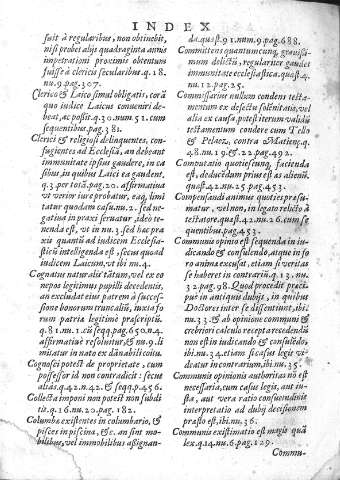 INDEX
fuit à regularibus, non obtinebit,
nisi probet alijs quadraginta annis
impetrationi proximis obtentum
fuisse à clericis secularibus. q.18.
nu.9.pag.307.
Clerico & Laico simul obligatis, corã
quo iudice Laicus conueniri de-
beat, ac possit. q.30.num.51.cum
sequentibus. pag.381.
Clerici & religiosi delinquentes, con-
fugientes ad Ecclesiã, an debeant
immunitate ipsius gaudere, in ca
sibus, in quibus Laici ea gaudent,
q.3.per totã.pag.20. affirmatiua
vt verior iure probatur, eaq; limi
tatur quodam casu.nu.2. sed ne-
gatiua in praxi seruatur, ideo te-
nenda est, vt in nu.3. sed hæc pra
xis quanti ad iudicem Ecclesia-
sticũ intelligenda est, secus quoad
iudicem Laicum, vt ibi nu.4.
Cognatus naturalis tãtum, vel ex eo
nepos legitimus pupilli decedentis,
an excludat eius patrem à succes-
sione bonorum truncalia, iuxta fo
rum patria legitimi præscriptũ.
q.81.nu.1.cũ seqq.pag.650.n.4.
affirmatiuè resoluitur, & nu.9. li
mitatur in nato ex dãnabili coitu.
Cognosci potest de proprietate, cum
possessor id non contradicit: secus
alias. q.42.n.42. & seqq.p.456.
Collecta imponi non potest non subdi
tis. q.16.nu.20.pag.182.
Columbæ existentes in columbario, &
pisces in piscina, &c. an sint mo-
biliũ, vel immobilibus assignan-
da. quæst.91.num.9.pag.688.
Committens quantumcunq; grauissi-
mum delictũ, regulariter gaudet
immunitate ecclesiastica. quæst.4.
nu.12.pag.25.
Commissarius nullum condens testa-
mentum ex defectu solẽnitatis, vel
alia ex causa, potest iterum validũ
testamentum condere cum Tello
& Pelaez, contra Matienç. q.
48.nu.19.& 22.pag.492.
Computatio quotiescunq; facienda
est, deducẽdum prius est as alienũ.
quæst.42.nu.25.pag.453.
Compensandi animus quoties præsu-
matur, vel non, in legato relicto à
testatore. quæst.42.nu.26.cum se
quentibus. pag.453.
Communis opinio est sequenda in iu-
dicando & consulendo, atque in fo
ro animæ excusat, etiam si veritas
se haberet in contrariũ. q.13.nu.
32.pag.98. Quod procedit præci-
puè in antiquis dubijs, in quibus
Doctores inter se dissentiunt, ibi
nu.33. & ab opinione communi &
crebriori calculo recepta recedendũ
non est in iudicando & consulẽdo,
ibi.nu.34. etiam si casus legis vi-
deatur incontrarium, ibi nu.35.
Communis opinionis autoritas nõ est
necessaria, cum casus legis, aut iu-
sta, aut vera ratio consuendinis
interpretatio ad dubij decisionem
præsto est, ibi nu.36.
Communis existimatio est magis quã
lex. q.14.nu.6.pag.129.
Commu-